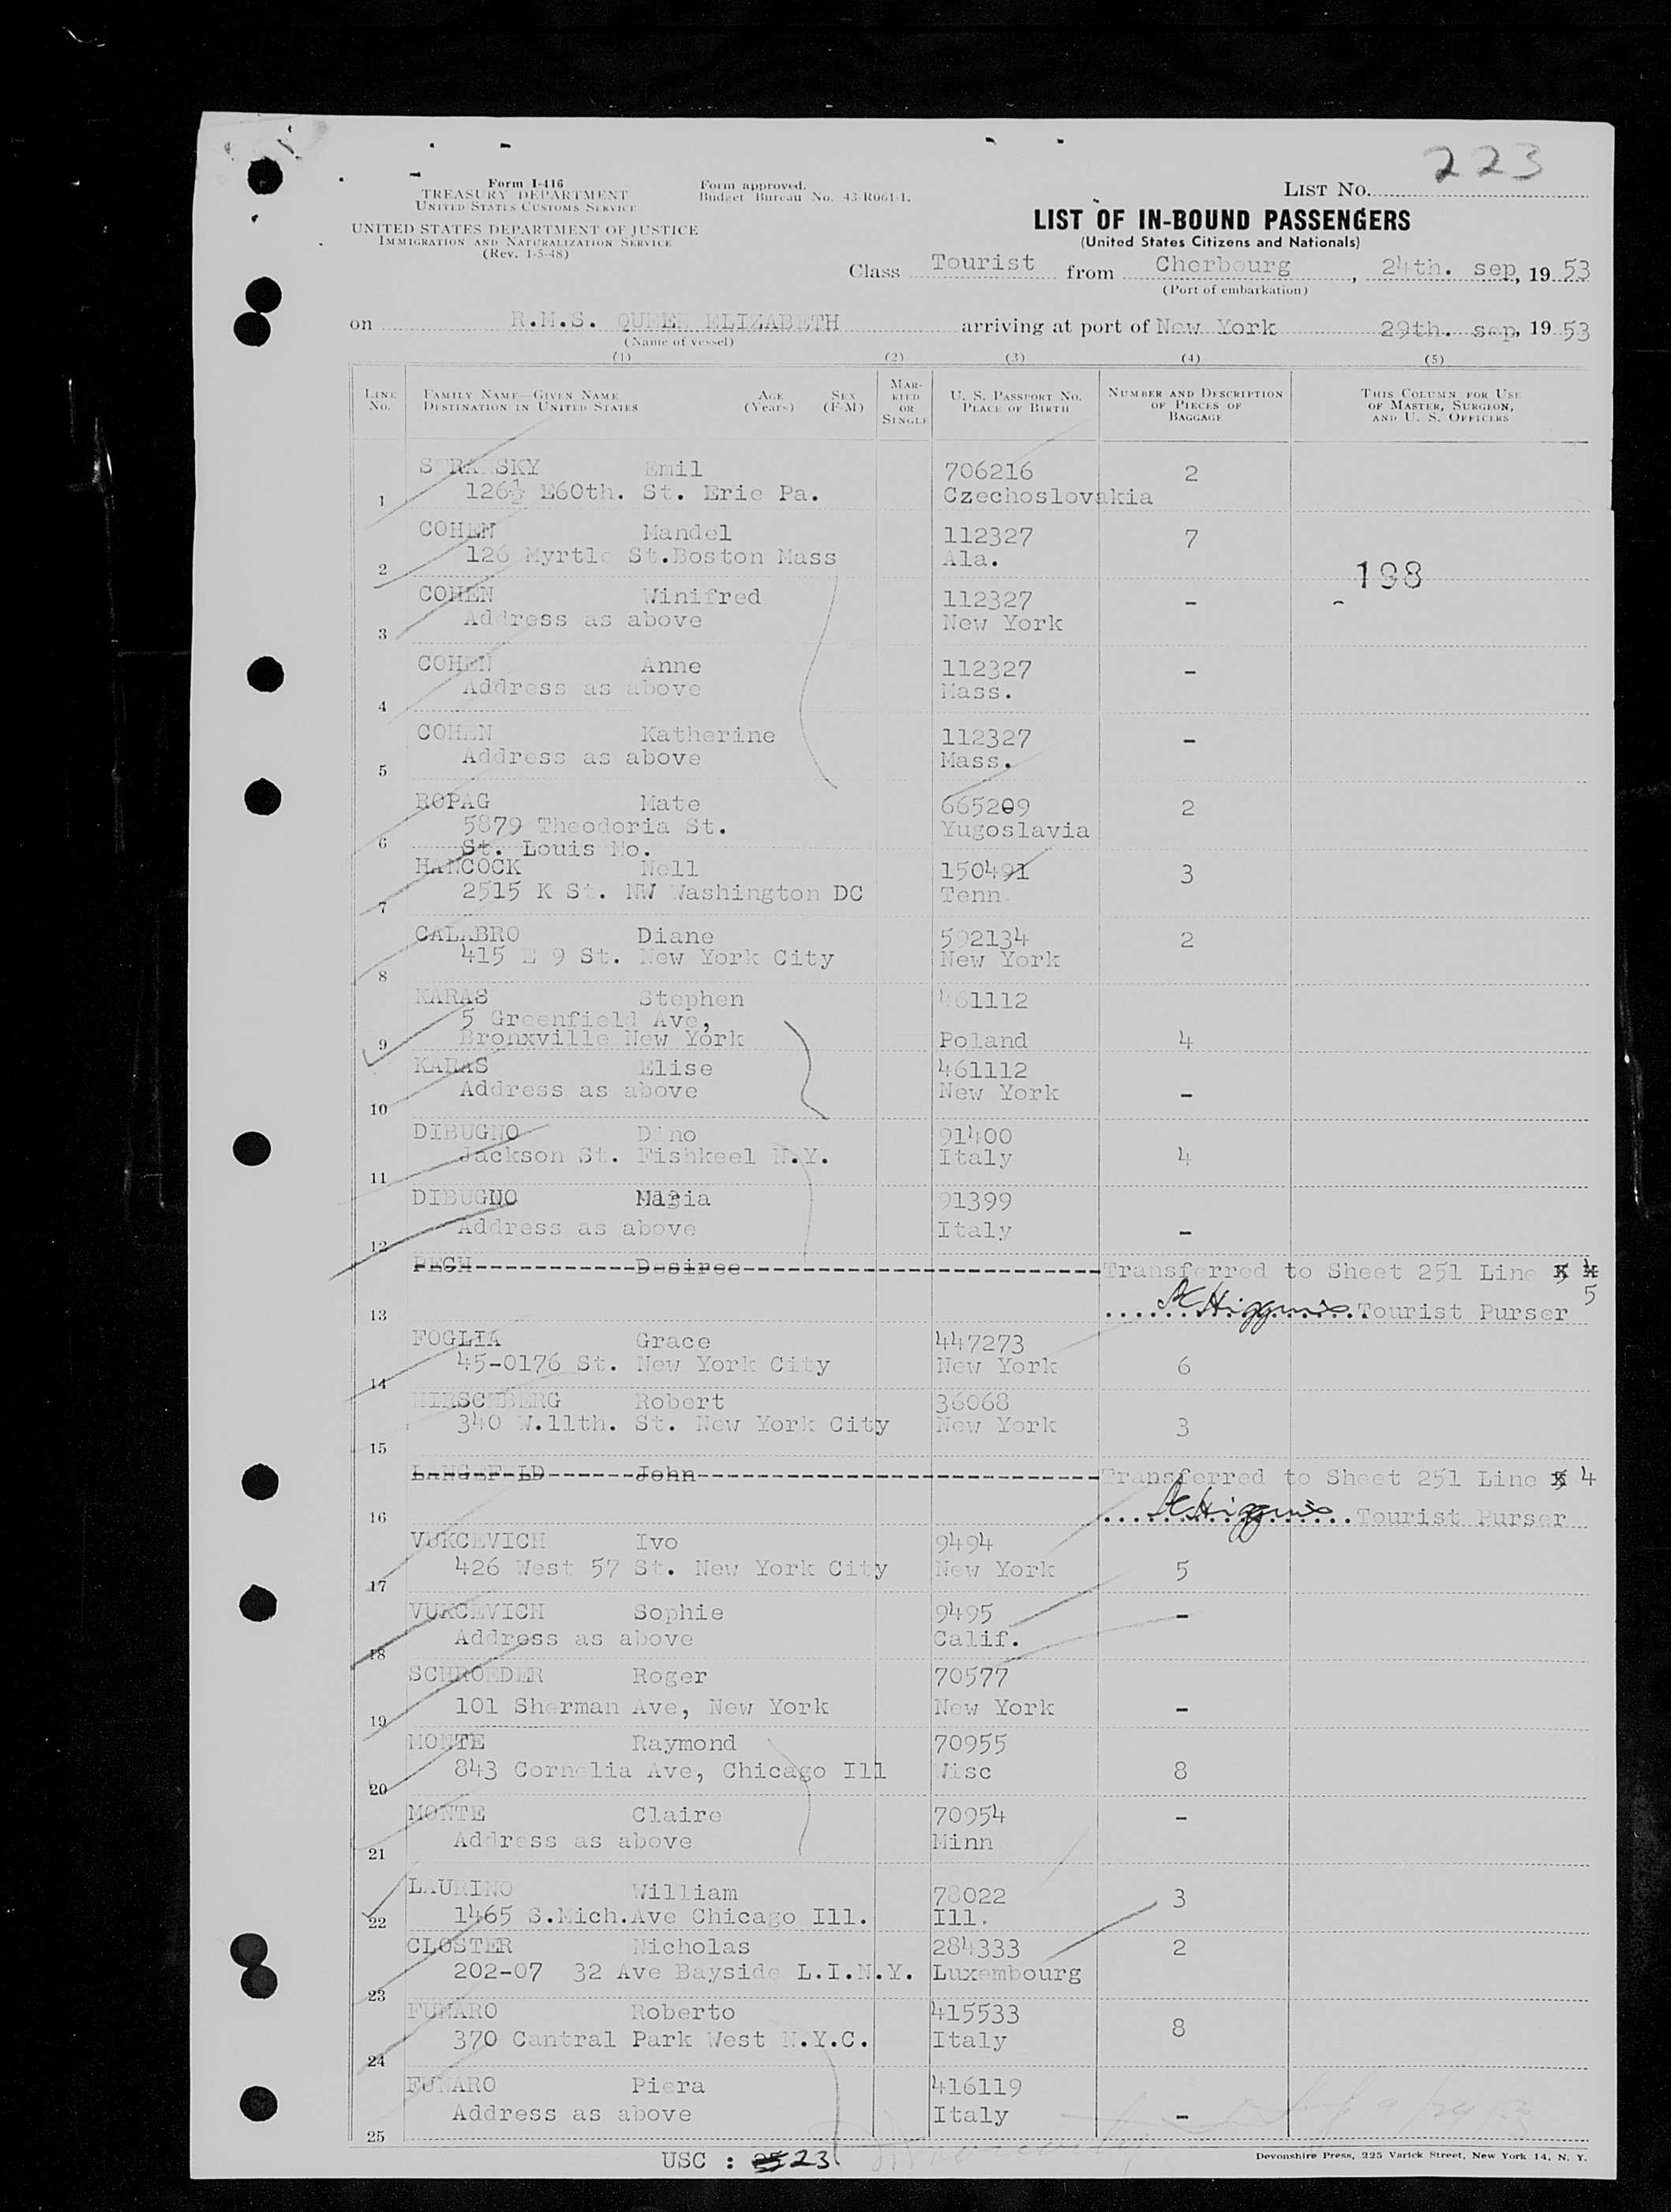 223
Form I-416
TREASURY DEPARTMENT
UNITED STATES CUSTOMS SERVICE
UNITED STATES DEPARTMENT OF JUSTICE
IMMIGRATION AND NATURALIZATION SERVICE
(Rev. 1-5-48)
Form approved.
Budget Bureau No. 43-R061-1.
LIST No.
LIST OF IN-BOUND PASSENGERS
(United States Citizens and Nationals)
Class Tourist from Cherbourg, 24th. sep, 19 53
(Port of embarkation)
on R.M.S. QUEEN ELIZABETH arriving at port of New York 29th. sep, 19 53
(Name of vessel)
(1) (2) (3) (4) (5)
LINE No.
FAMILY NAME—GIVEN NAME DESTINATION IN UNITED STATES
AGE (Years)
SEX (F-M)
MARRIED OR SINGLE
U. S. PASSPORT NO. PLACE OF BIRTH
NUMBER AND DESCRIPTION OF PIECES OF BAGGAGE
THIS COLUMN FOR USE OF MASTER, SURGEON, AND U. S. OFFICERS
STRANSKY Emil 706216 2
1 126½ E60th. St. Erie Pa. Czechoslovakia
COHEN Mandel 112327 7
2 126 Myrtle St.Boston Mass Ala.
198
COHEN Winifred 112327 -
3 Address as above New York
COHEN Anne 112327 -
4 Address as above Mass.
COHEN Katherine 112327 -
5 Address as above Mass.
ROPAG Mate 665209 2
5879 Theodoria St. Yugoslavia
6 St. Louis Mo.
HANCOCK Nell 150491 3
7 2515 K St. NW Washington DC Tenn.
CALABRO Diane 592134 2
8 415 E 9 St. New York City New York
KARAS Stephen 461112
5 Greenfield Ave,
9 Bronxville New York Poland 4
KARAS Elise 461112
10 Address as above New York -
DIBUGNO Dino 91400
11 Jackson St. Fishkeel N.Y. Italy 4
DIBUGNO Maria 91399
12 Address as above Italy -
PECH Desiree Transferred to Sheet 251 Line 5
13 Higgins Tourist Purser
FOGLIA Grace 447273
14 45-0176 St. New York City New York 6
HIRSCHBERG Robert 36068
15 340 W.11th. St. New York City New York 3
LANGEFELD John Transferred to Sheet 251 Line 4
16 Higgins Tourist Purser
VUKCEVICH Ivo 9494
17 426 West 57 St. New York City New York 5
VUKCEVICH Sophie 9495 -
18 Address as above Calif.
SCHROEDER Roger 70577
19 101 Sherman Ave, New York New York -
MONTE Raymond 70955
20 843 Cornelia Ave, Chicago Ill Wisc 8
MONTE Claire 70954 -
21 Address as above Minn
LAURINO William 78022 3
22 1465 S.Mich.Ave Chicago Ill. Ill.
CLOSTER Nicholas 284333 2
23 202-07 32 Ave Bayside L.I.N.Y. Luxembourg
FUNARO Roberto 415533 8
24 370 Cantral Park West N.Y.C. Italy
FUNARO Piera 416119
25 Address as above Italy -
USC : 25 23
Devonshire Press, 225 Varick Street, New York 14, N. Y.